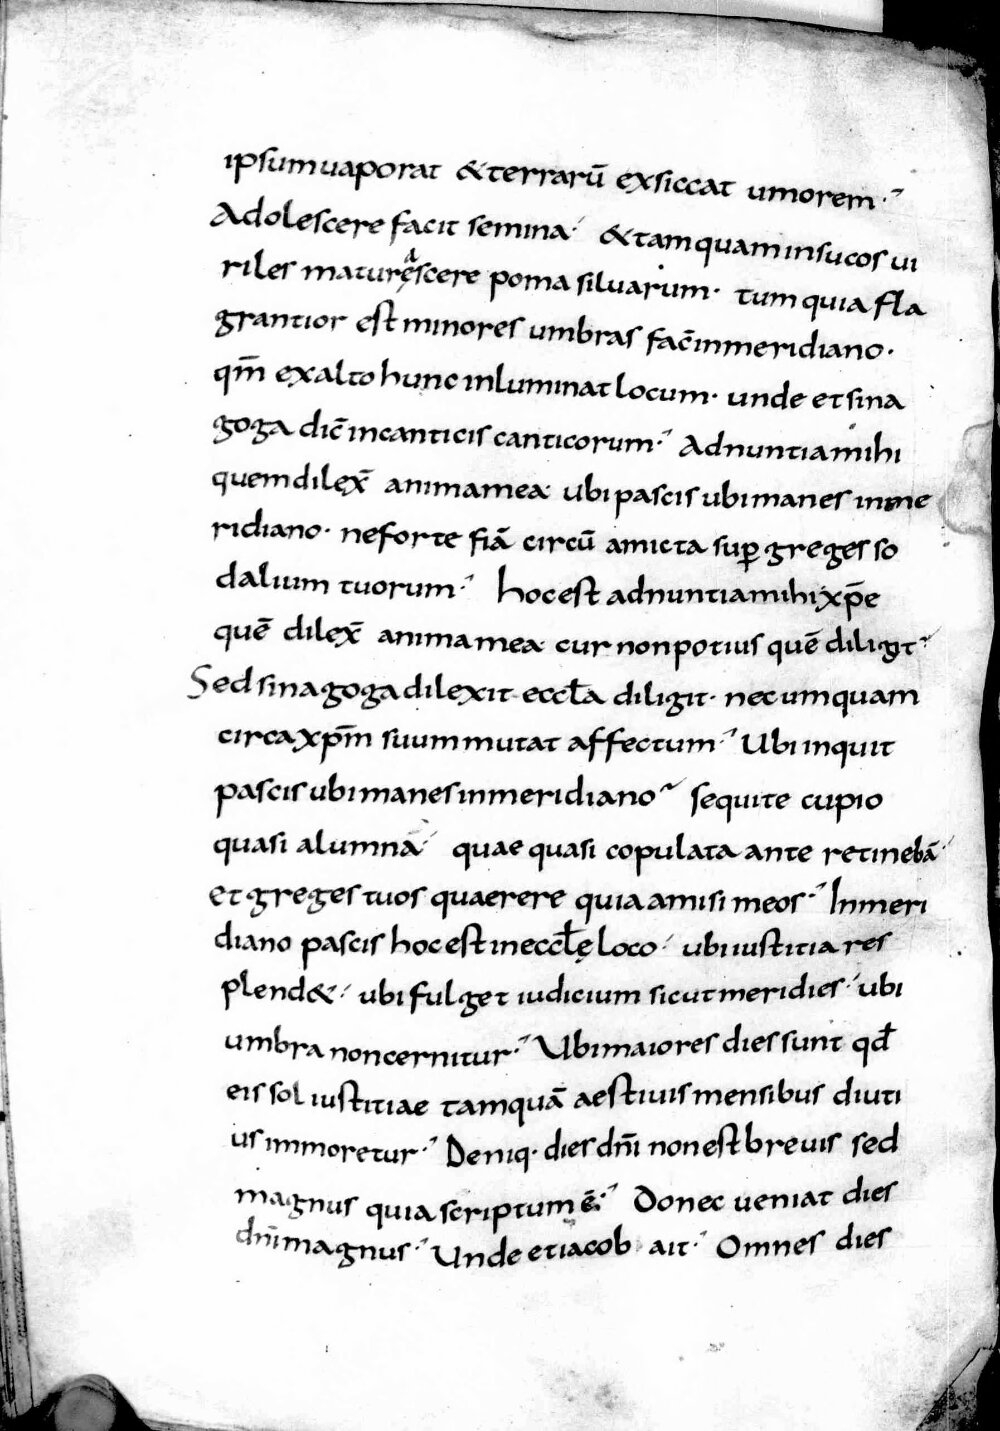 ipsum uaporat & terrarū exsiccat umorem·
Adolescere facit semina· & tamquam in sucos ui
riles maturęscere poma siluarum· tum quia fla
grantior est minores umbras fac̄ in meridiano·
qm̄ ex alto hunc inluminat locum· unde et sina
goga dic̄ in canticis canticorum· Adnuntia mihi
quem dilex̄ anima mea· ubi pascis ubi manes in me
ridiano· ne forte fiā circū amicta sup̱ greges so
dalium tuorum· hoc est adnuntia mihi xp̄e
quē dilex̄ anima mea· cur non potius quē diligit·
Sed sinagoga dilexit eccła diligit· nec umquam
circa xp̄m suum mutat affectum· Ubi inquit
pascis ubi manes in meridiano· sequi te cupio
quasi alumnā· quae quasi copulata ante retinebā·
et greges tuos quaerere quia amisi meos· In meri
diano pascis hoc est in eccłę loco· ubi iustitia res
plend&· ubi fulget iudicium sicut meridies· ubi
umbra non cernitur· Ubi maiores dies sunt qđ
eis sol iustitiae tamquā aestiuis mensibus diuti
us immoretur· Deniq· dies dn̄i non est breuis sed
magnus quia scriptum ē· Donec ueniat dies
dn̄i magnus· Unde et iacob ait· Omnes dies